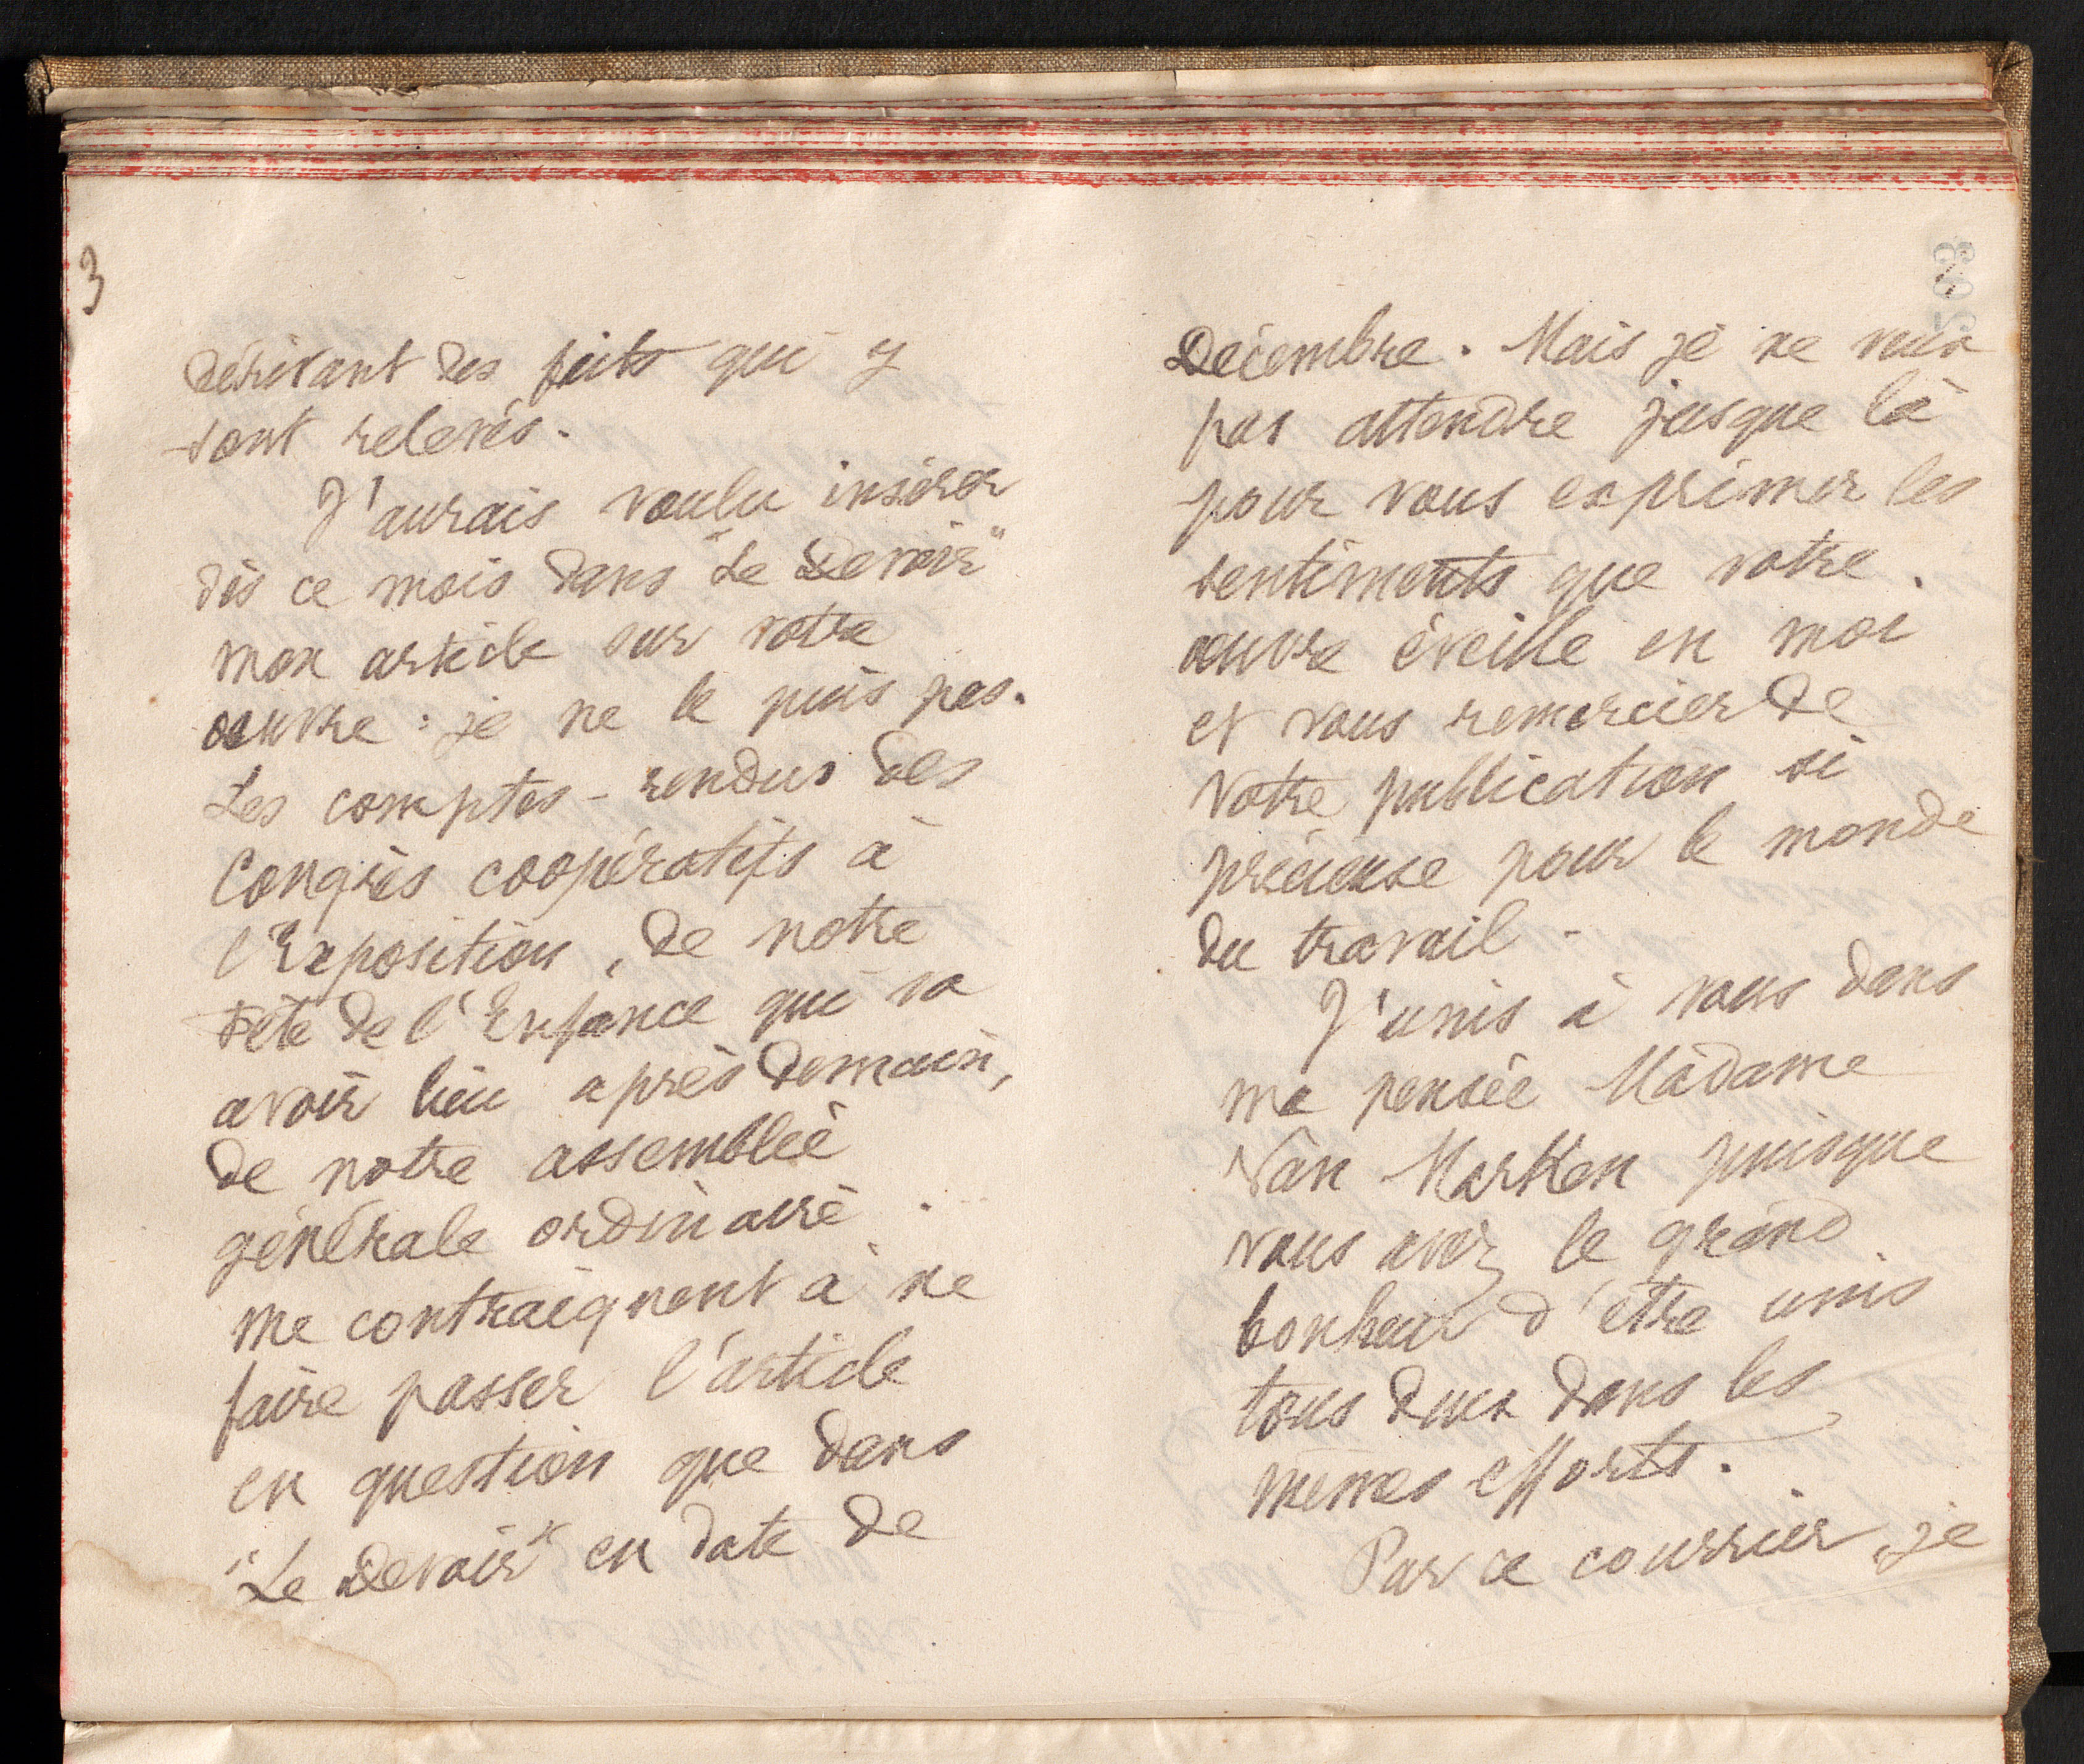 3
dérivant des faits qui y
sont relevés.
J'aurais voulu insérer
dès ce mois dans "Le Devoir"
mon article sur votre
oeuvre : je ne le puis pas.
Les comptes-rendus des
Congrès coopératifs à
l'Exposition, de notre
Fête de l'Enfance qui va
avoir lieu après demain,
de notre assemblée
générale ordinaire
me contraignent à ne
faire passer l'article
en question que dans
"Le Devoir" en date de
503
Décembre. Mais je ne veux
pas attendre jusque là
pour vous exprimer les
sentiments que votre
oeuvre éveille en moi
et vous remercier de
votre publication si
précieuse pour le monde
du travail.
J'unis à vous dans
ma pensée Madame
Van Marken puisque
vous avez le grand
bonheur d'être unis
tous deux dans les
mêmes efforts.
Par ce courrier, je